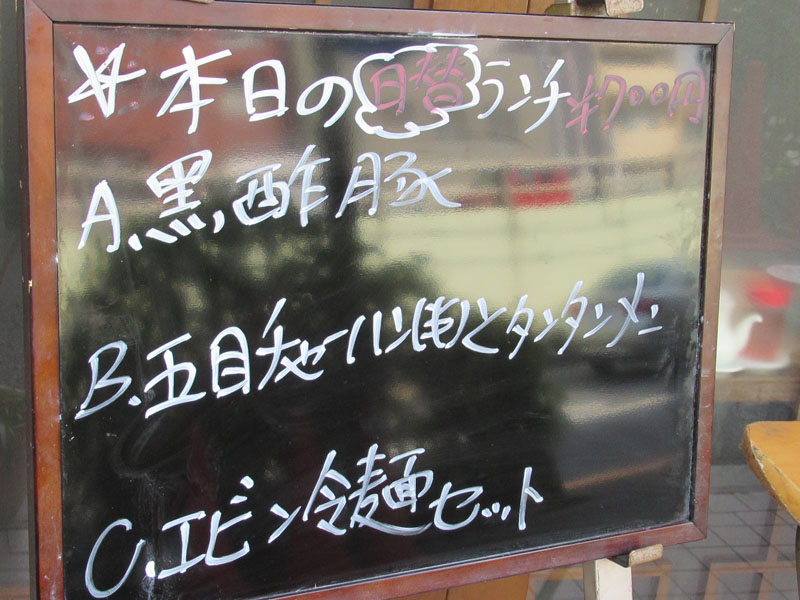 ☆本日の日替ランチ ¥700円
A.黒酢豚
B.五目チャーハン(半)とタンタンメン
C.エビン冷麺セット